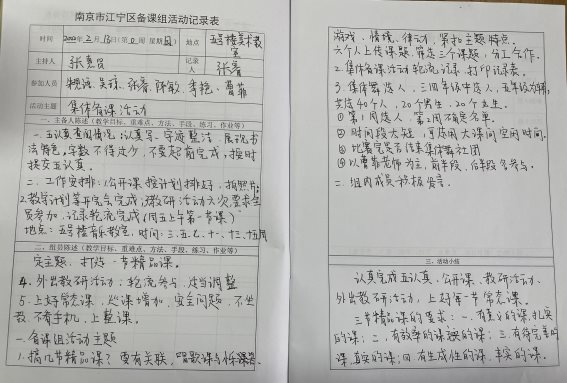 南京市江宁区备课组活动记录表
时间 2月13日(第0周 星期四) 地点 五号楼美术教室
主持人 张惠 记录人 张蓉
参加人员 吴琼、张蓉、陈敏、李艳、曹蓓
活动主题 集体备课活动
一、主备人陈述(教学目标、重难点、方法、手段、练习、作业等)
一.五认真查阅情况:认真写、字迹整洁、展现书
法特色。字数不得过少,不要超前完成,按时
提交五认真。
二、工作安排:公开课按计划排好,拍照片;
2.教学计划等开完会完成;3.教研活动六次需求全
员参加,记录轮流完成(周五上午第一节课)
地点:五号楼音乐教室,时间:三、五、七、十、十三、十五周
二、组员陈述(教学目标、重难点、方法、手段、练习、作业等)
定主题,打造一节精品课。
4、外出教研活动,轮流参与,适当调整
5、上好常态课,巡课增加,安全问题,不坐
教,不看手机,上整课。
一、备课组活动主题
1.搞几节精品课?要有关联,唱歌课与
游戏、情境、律动,紧扣主题特点。
六个人上传课题,筛选三个课题,分工合作。
2.集体备课活动轮流记录,打印记录表。
3.集体舞选人,三四年级选人,
共选40个人,20个男生,20个女生。
①第1周选人,第2周有定名单。
②时间段太短,可选用大课间空闲时间。
③比赛完是否结束集体舞社团
④以曹蓓老师为主,前半段,后半段各参与。
二、组内成员积极发言。
三、活动小结
认真完成五认真、公开课、教研活动、
外出教研活动,上好每一节常态课。
三节精品课的要求:一、有意义的课,扎实
的课;二、有效率的课,充实的课;三、有待完善的
课,真实的课;四、有生成性的课,丰实的课。